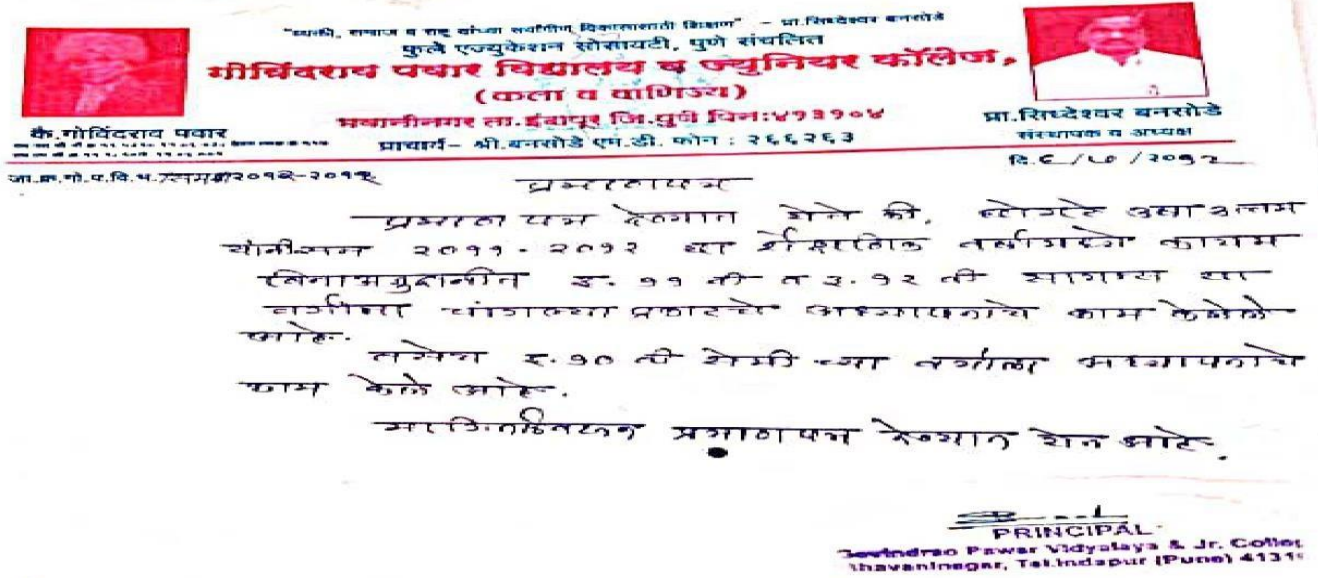 "व्यक्ती, समाज व राष्ट्र यांच्या सर्वांगीण विकासासाठी शिक्षण" – प्रा.सिध्देश्वर बनसोडे
फुले एज्युकेशन सोसायटी, पुणे संचलित
गोविंदराव पवार विद्यालय व ज्युनियर कॉलेज,
(कला व वाणिज्य)
भवानीनगर ता.इंदापूर जि.पुणे पिन:४१३१०४
प्राचार्य– श्री.बनसोडे एम.डी. फोन : २६६२६३
कै.गोविंदराव पवार
प्रा.सिध्देश्वर बनसोडे
संस्थापक व अध्यक्ष
जा.क्र.गो.प.वि.भ.
दि. ६/७/२०१२
प्रमाणपत्र
प्रमाणपत्र देण्यात येते की, उषा उत्तम
यांनी सन २०११-२०१२ ह्या शैक्षणिक वर्षामध्ये कायम
विनाअनुदानीत इ. ११ वी व इ. १२ वी या
वर्गांना चांगल्या प्रकारचे अध्यापनाचे काम केलेले
आहे.
तसेच इ. १० वी च्या वर्गाला अध्यापनाचे
काम केले आहे.
प्रमाणपत्र देण्यात येत आहे.
PRINCIPAL
Govindrao Pawar Vidyalaya & Jr. Colleg
Bhavaninagar, Tal.Indapur (Pune) 4131